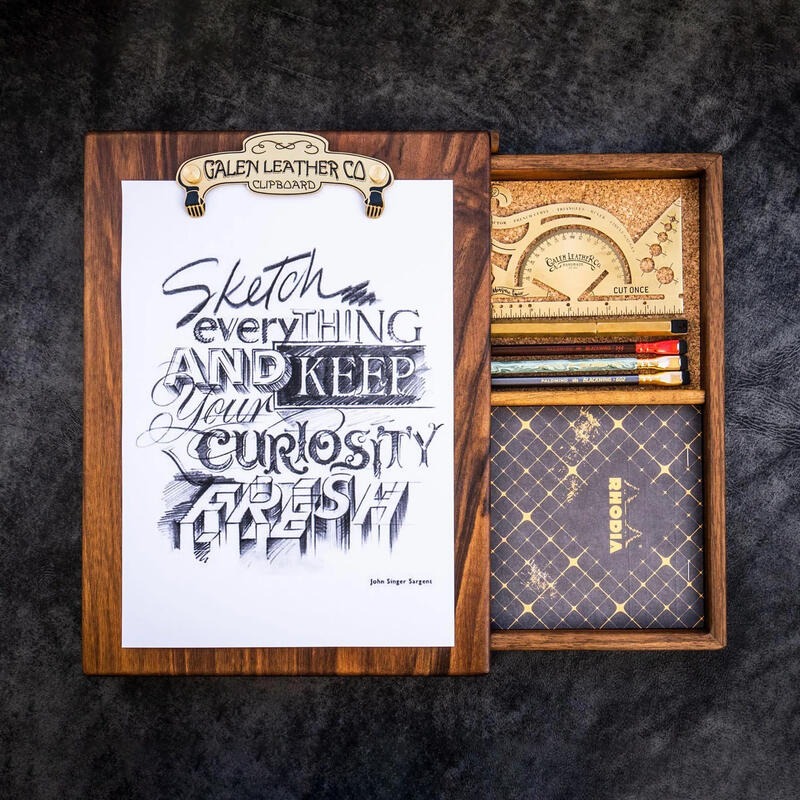 GALEN LEATHER CO
CLIPBOARD
Sketch
everyTHING
AND KEEP
Your
CURIOSITY
FRESH
John Singer Sargent
GALEN LEATHER CO
CUT ONCE
BLACKWING
PALOMINO BLACKWING 602
RHODIA